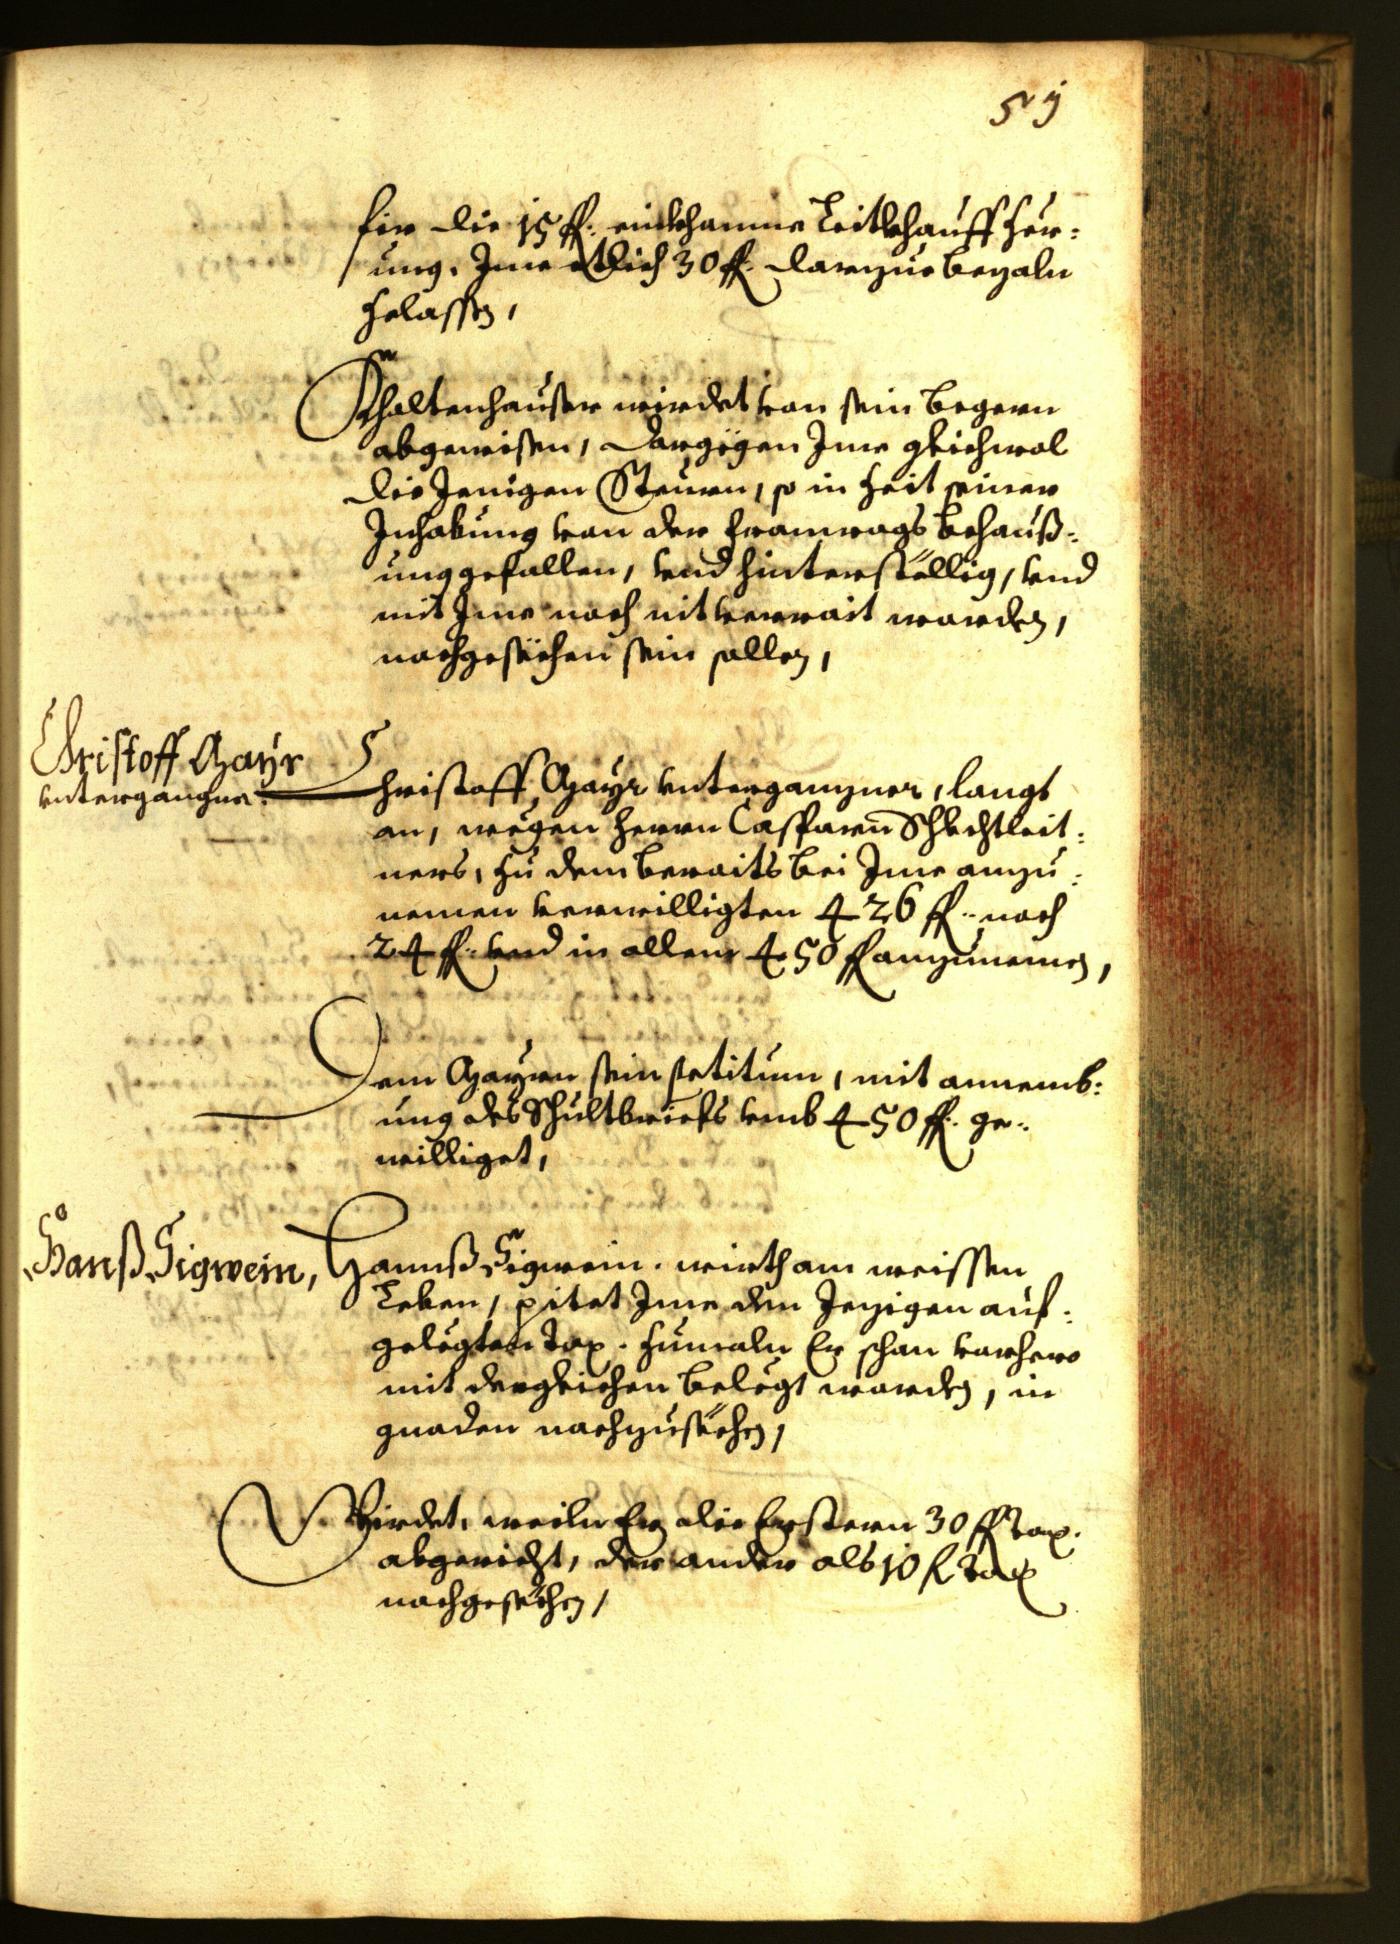 51
für die 15 ff: einkhame Leitkhauff Zer-
ung, Ime etlich 30 ff. darzue bezaln
zelassen,
Khaltenhauser wirdet von sein begern
abgewisen, dargegen Ime gleichwol
die Jenigen Steurn, so in Zeit seiner
Inhabung von der behauß:
ung gefallen, vnd hinterstellig, vnd
mit Ime noch nit verrait worden,
nachgesechen sein sollen,
Christoff Mayr
vnterganzner.
Christoff Mayr vnterganzner, langt
an, wegen Herrn Casparn Schlechtleit:
ners, zu dem beraits bei Ime anzu:
nemen verwilligten 426 ff: noch
24 ff: vnd in allem 450 ff anzunemen,
Dem Mayrn sein petitum, mit annemb:
ung des Schultbriefs vmb 450 ff. ge:
williget,
Hanß Sigwein,
Hannß Sigwein. wirth am weissen
Leben, pitet Ime den Jezigen auf:
gelegten Tax. zumaln Er schon vorhero
mit dergleichen belegt worden, in
gnaden nachzusechen,
Wirdet, weiln Er die Erstern 30 ff Tax.
abgericht, der ander als 10 fl Tax
nachgesechen,